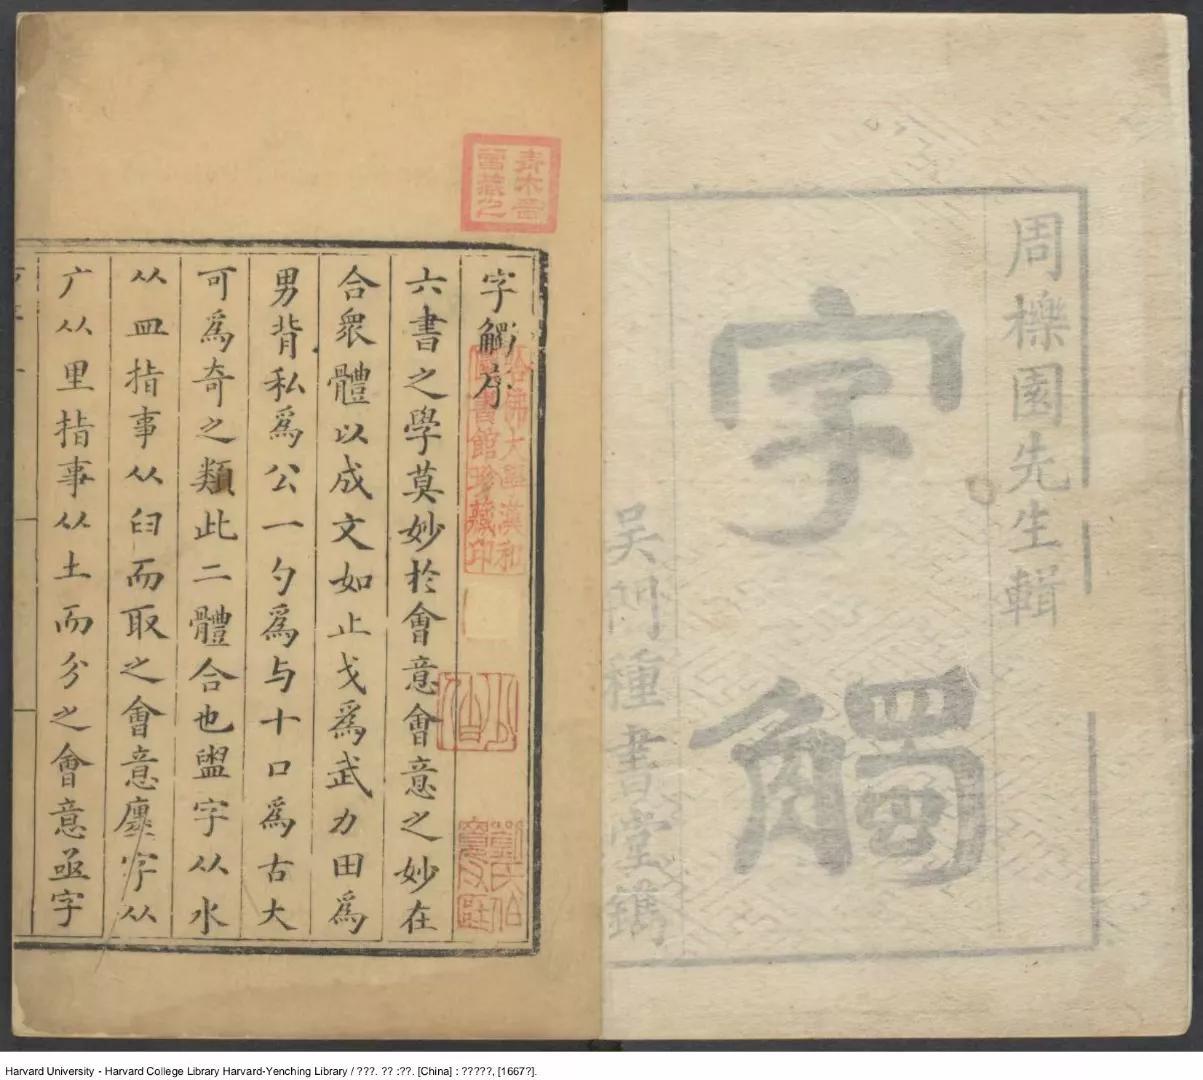 周櫟園先生輯
字觸
吳門種書堂鐫
字觸序
六書之學莫妙於會意會意之妙在
合衆體以成文如止戈爲武力田爲
男背私爲公一勺爲与十口爲古大
可爲奇之類此二體合也盥字从水
从皿指事从臼而取之會意廛字从
广从里指事从土而分之會意亟字
青木
書藏之
哈佛大學漢和
圖書館珍藏印
Harvard University - Harvard College Library Harvard-Yenching Library / ???. ?? :??. [China] : ?????, [1667?].